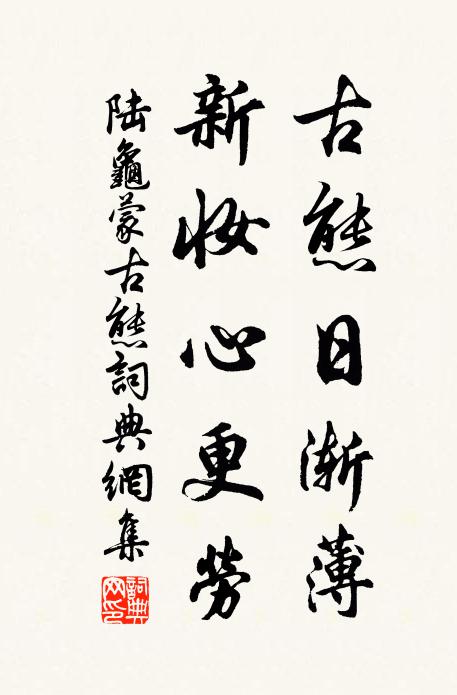 古態日漸薄
新妆心更勞
陆龜蒙古態詞典網集
詞典
网印